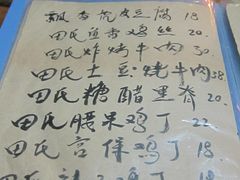 飘香虎皮豆腐 18
田氏鱼香鸡丝 20.
田氏炸烤牛肉 30.
田氏土豆烧牛肉 38
田氏糖醋里脊 20
田氏腰果鸡丁 22
田氏宫保鸡丁 18.
田氏 鸡丁 18